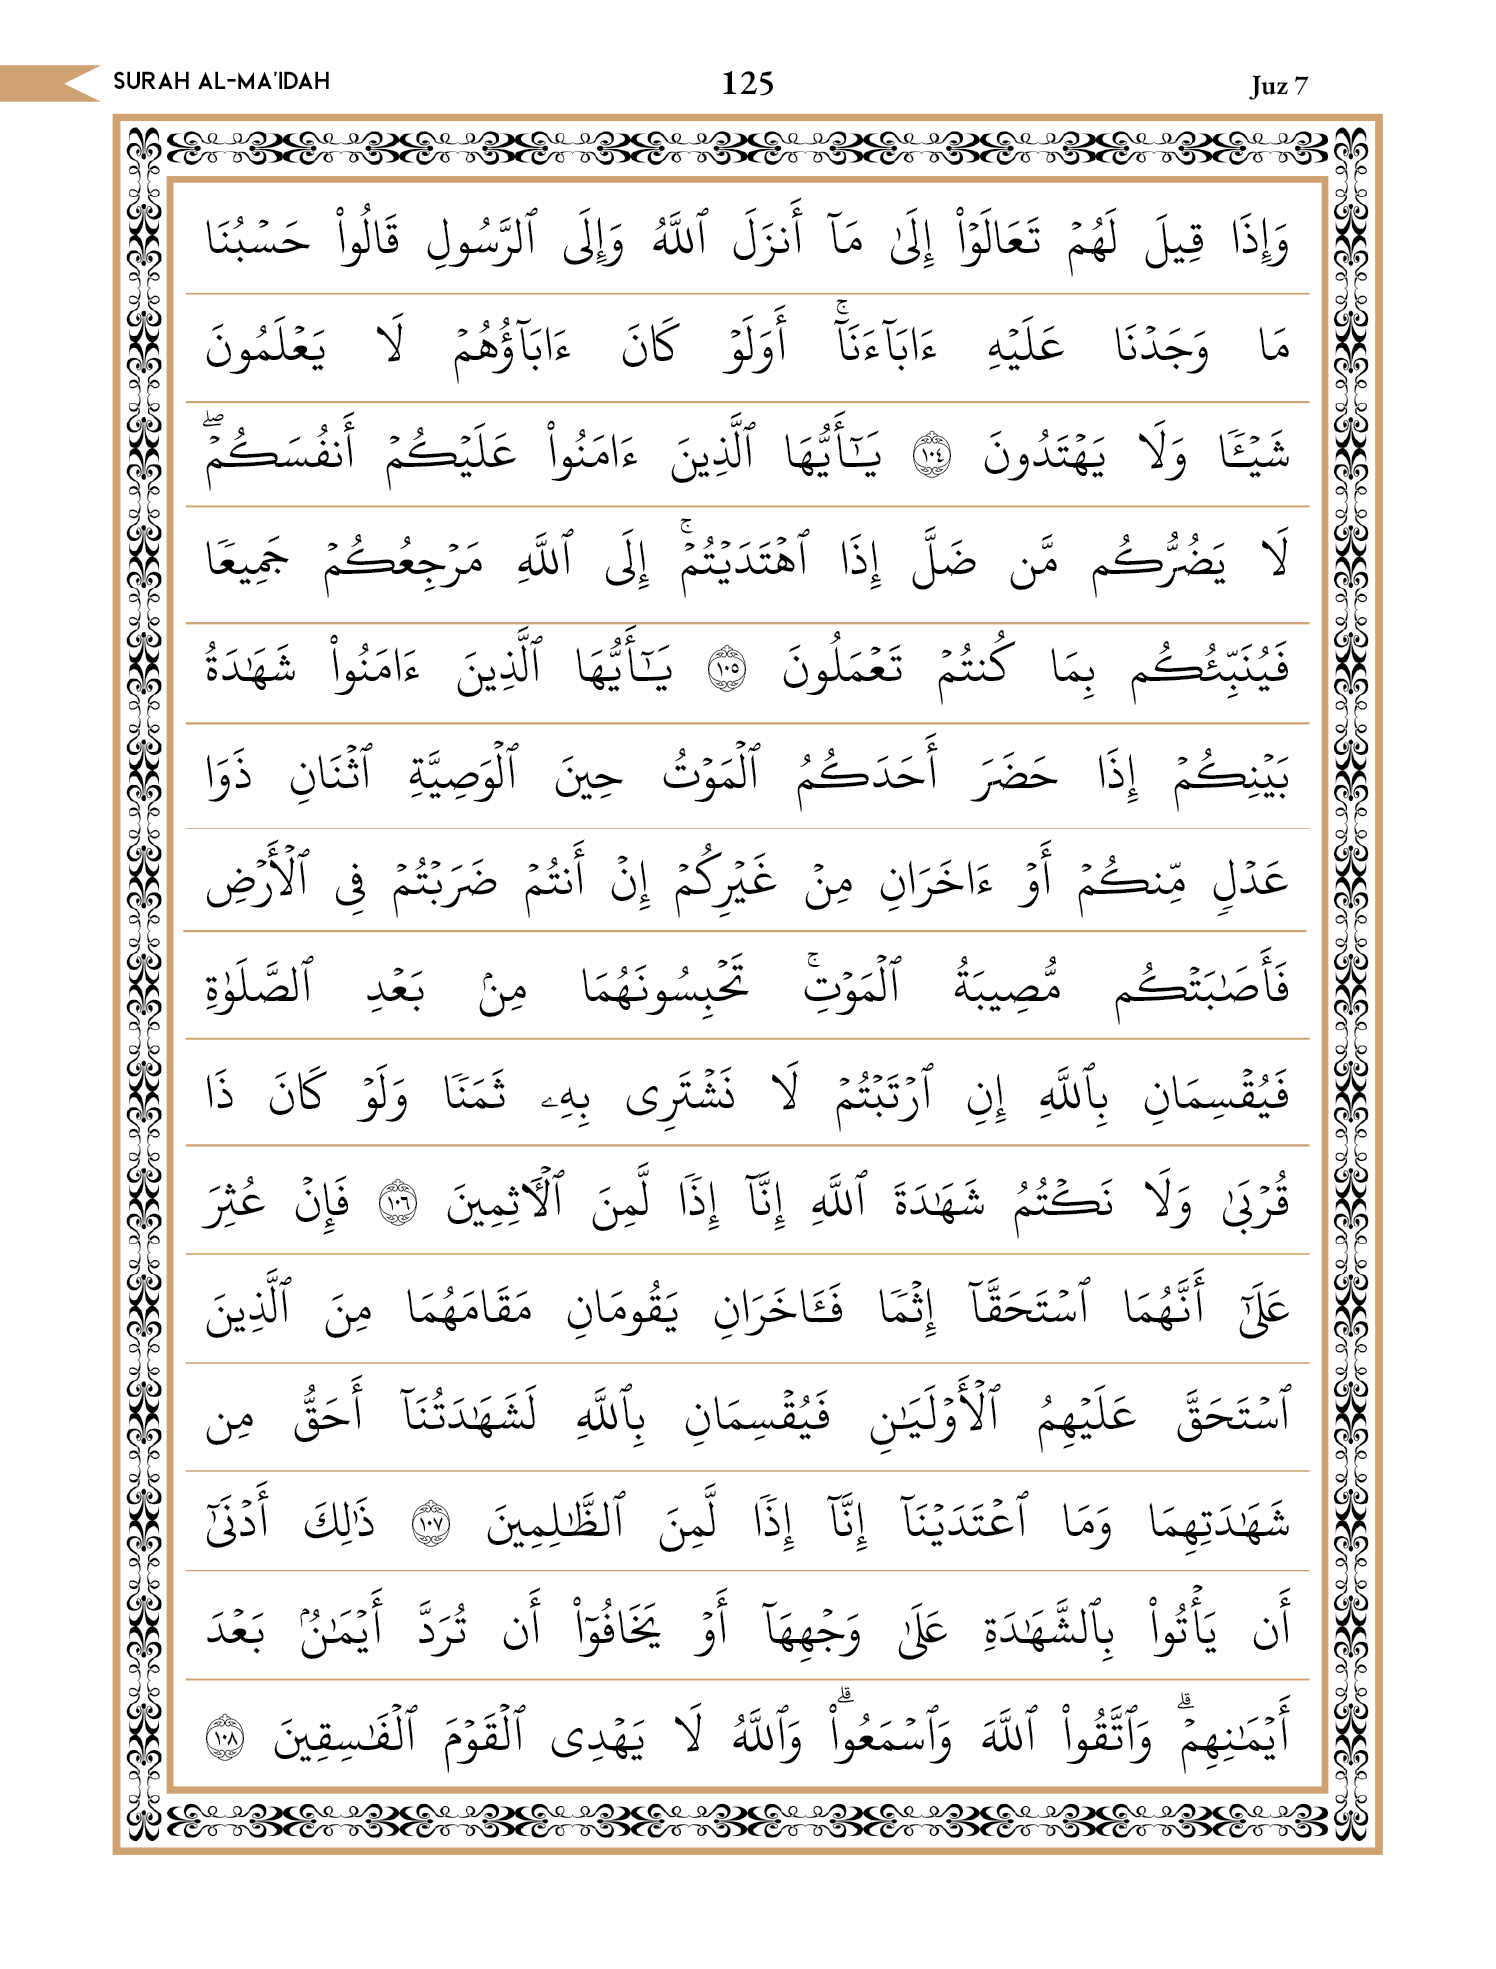 SURAH AL-MA'IDAH 125 Juz 7
وَإِذَا قِيلَ لَهُمۡ تَعَالَوۡاْ إِلَىٰ مَآ أَنزَلَ ٱللَّهُ وَإِلَى ٱلرَّسُولِ قَالُواْ حَسۡبُنَا
مَا وَجَدۡنَا عَلَيۡهِ ءَابَآءَنَآۚ أَوَلَوۡ كَانَ ءَابَآؤُهُمۡ لَا يَعۡلَمُونَ
شَيۡـٔٗا وَلَا يَهۡتَدُونَ ١٠٤ يَـٰٓأَيُّهَا ٱلَّذِينَ ءَامَنُواْ عَلَيۡكُمۡ أَنفُسَكُمۡۖ
لَا يَضُرُّكُم مَّن ضَلَّ إِذَا ٱهۡتَدَيۡتُمۡۚ إِلَى ٱللَّهِ مَرۡجِعُكُمۡ جَمِيعٗا
فَيُنَبِّئُكُم بِمَا كُنتُمۡ تَعۡمَلُونَ ١٠٥ يَـٰٓأَيُّهَا ٱلَّذِينَ ءَامَنُواْ شَهَٰدَةُ
بَيۡنِكُمۡ إِذَا حَضَرَ أَحَدَكُمُ ٱلۡمَوۡتُ حِينَ ٱلۡوَصِيَّةِ ٱثۡنَانِ ذَوَا
عَدۡلٖ مِّنكُمۡ أَوۡ ءَاخَرَانِ مِنۡ غَيۡرِكُمۡ إِنۡ أَنتُمۡ ضَرَبۡتُمۡ فِي ٱلۡأَرۡضِ
فَأَصَٰبَتۡكُم مُّصِيبَةُ ٱلۡمَوۡتِۚ تَحۡبِسُونَهُمَا مِنۢ بَعۡدِ ٱلصَّلَوٰةِ
فَيُقۡسِمَانِ بِٱللَّهِ إِنِ ٱرۡتَبۡتُمۡ لَا نَشۡتَرِي بِهِۦ ثَمَنٗا وَلَوۡ كَانَ ذَا
قُرۡبَىٰ وَلَا نَكۡتُمُ شَهَٰدَةَ ٱللَّهِ إِنَّآ إِذٗا لَّمِنَ ٱلۡأٓثِمِينَ ١٠٦ فَإِنۡ عُثِرَ
عَلَىٰٓ أَنَّهُمَا ٱسۡتَحَقَّآ إِثۡمٗا فَـَٔاخَرَانِ يَقُومَانِ مَقَامَهُمَا مِنَ ٱلَّذِينَ
ٱسۡتَحَقَّ عَلَيۡهِمُ ٱلۡأَوۡلَيَٰنِ فَيُقۡسِمَانِ بِٱللَّهِ لَشَهَٰدَتُنَآ أَحَقُّ مِن
شَهَٰدَتِهِمَا وَمَا ٱعۡتَدَيۡنَآ إِنَّآ إِذٗا لَّمِنَ ٱلظَّـٰلِمِينَ ١٠٧ ذَٰلِكَ أَدۡنَىٰٓ
أَن يَأۡتُواْ بِٱلشَّهَٰدَةِ عَلَىٰ وَجۡهِهَآ أَوۡ يَخَافُوٓاْ أَن تُرَدَّ أَيۡمَٰنُۢ بَعۡدَ
أَيۡمَٰنِهِمۡۗ وَٱتَّقُواْ ٱللَّهَ وَٱسۡمَعُواْۗ وَٱللَّهُ لَا يَهۡدِي ٱلۡقَوۡمَ ٱلۡفَٰسِقِينَ ١٠٨